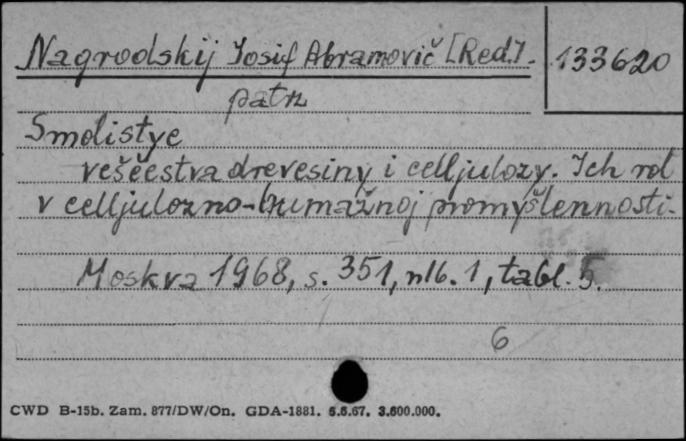 Nagrodskij Iosif Abramovič [Red.]. 133620
patrz
Smolistye
veščestva drevesiny i celljulozy. Ich rol
v celljulozno-bumažnoj promyšlennosti.
Moskva 1968, s. 351, nlb. 1, tabl. 5.
6
CWD B-15b. Zam. 877/DW/On. GDA-1881. 6.6.67. 3.600.000.